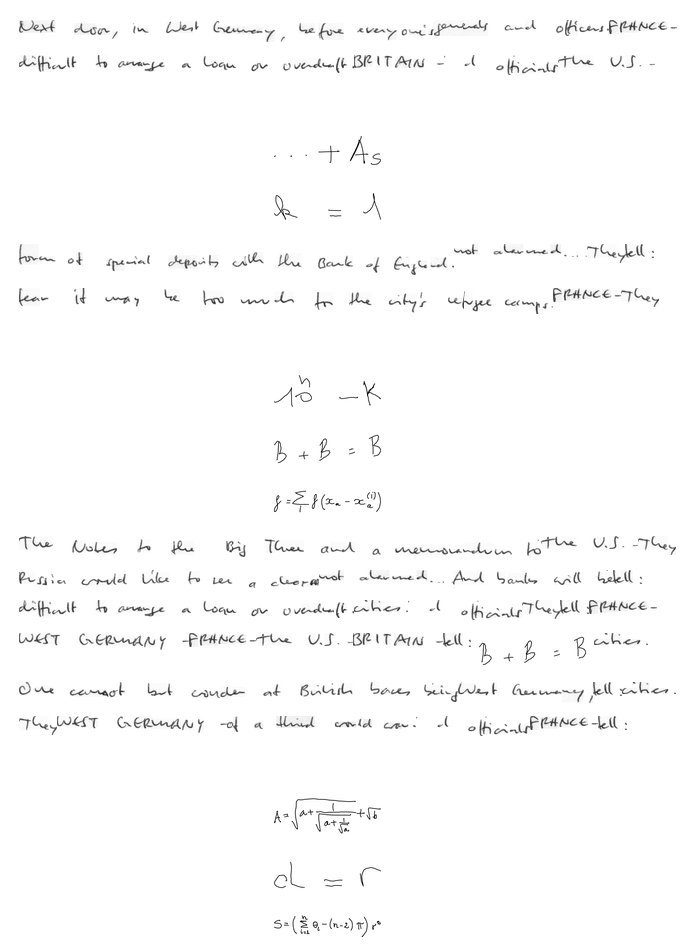 Next door, in West Germany, before every one's generals and officers FRANCE -
difficult to arrange a loan or overdraft BRITAIN - : d officials the U.S. -
... + A_S
k = 1
form of special deposits with the Bank of England. not alarmed... They tell :
fear it may be too much for the city's refugee camps. FRANCE - They
10^n - K
B + B = B
f = \sum_i f(x_a - x_a^{(i)})
The Notes to the Big Three and a memorandum to the U.S. - They
Russia would like to see a clear not alarmed... And banks will be tell :
difficult to arrange a loan or overdraft cities : d officials They tell FRANCE -
WEST GERMANY - FRANCE - the U.S. - BRITAIN - tell : B + B = B cities.
One cannot but wonder at British bases being West Germany, tell : cities.
They WEST GERMANY - of a third world war : d officials FRANCE - tell :
A = \sqrt{a + \frac{1}{\sqrt{a + \frac{1}{\sqrt{a}}}}} + \sqrt{b}
d = r
S = (\sum_{i=1}^{n} θ_i - (n-2) π) r^2